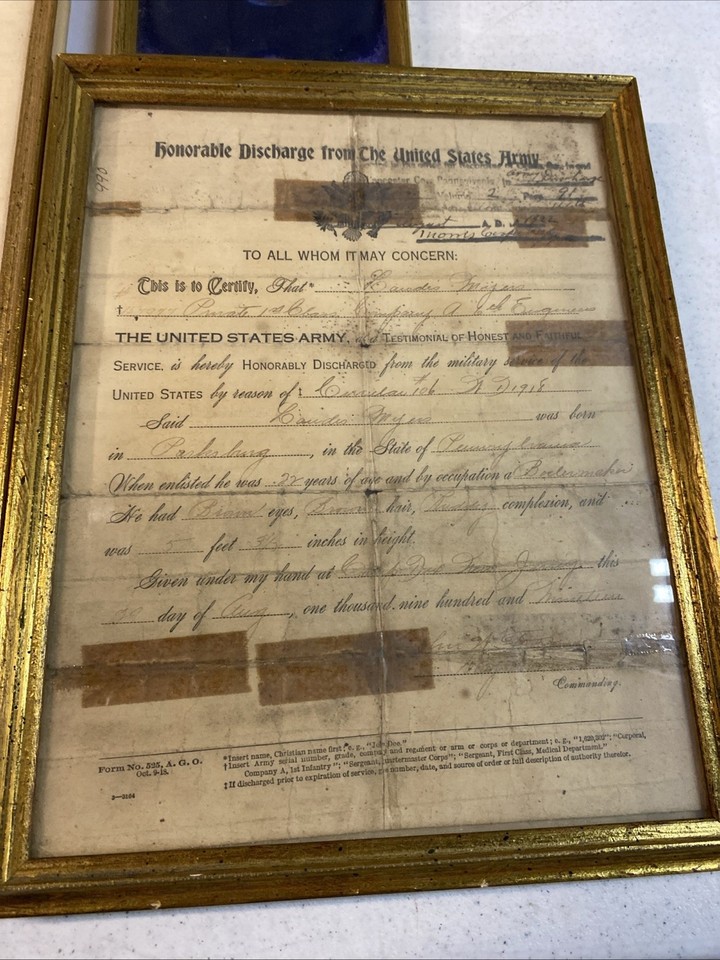 Honorable Discharge from The United States Army
Lancaster Co., Pennsylvania, in
Army Discharge
Volume 2 Page 91
August A. D. 1922
TO ALL WHOM IT MAY CONCERN:
This is to Certify, That* Landis Myers
† Private 1st Class Company A Engineers
THE UNITED STATES ARMY, as a TESTIMONIAL OF HONEST AND FAITHFUL
SERVICE, is hereby HONORABLY DISCHARGED from the military service of the
UNITED STATES by reason of ‡ Circular 106 W D 1918
Said Landis Myers was born
in Parksburg, in the State of Pennsylvania
When enlisted he was 22 years of age and by occupation a Boilermaker
He had Brown eyes, Brown hair, Ruddy complexion, and
was 5 feet inches in height.
Given under my hand at Camp Dix New Jersey this
day of Aug, one thousand nine hundred and Nineteen
Commanding.
Form No. 525, A. G. O.
Oct. 9-18.
*Insert name, Christian name first; e. g., "John Doe."
†Insert Army serial number, grade, company and regiment or arm or corps or department; e. g., "1,620,302"; "Corporal,
Company A, 1st Infantry"; "Sergeant, Quartermaster Corps"; "Sergeant, First Class, Medical Department."
‡If discharged prior to expiration of service, give number, date, and source of order or full description of authority therefor.
3—3164